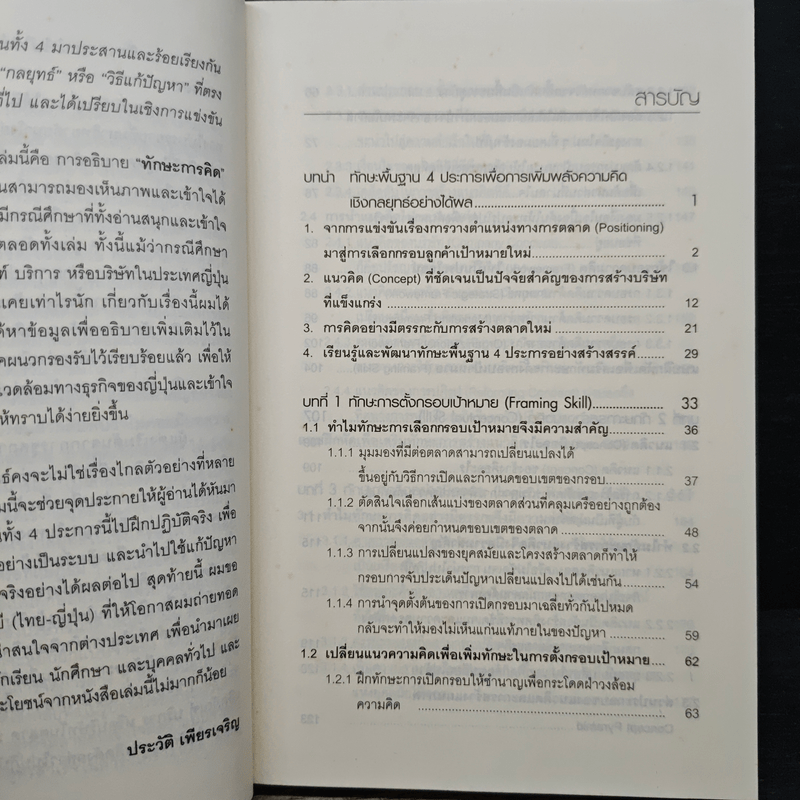 นทั้ง 4 มาประสานและร้อยเรียงกัน
"กลยุทธ์" หรือ "วิธีแก้ปัญหา" ที่ตรง
ไป และได้เปรียบในเชิงการแข่งขัน
ล่มนี้คือ การอธิบาย "ทักษะการคิด"
นสามารถมองเห็นภาพและเข้าใจได้
มีกรณีศึกษาที่ทั้งอ่านสนุกและเข้าใจ
ตลอดทั้งเล่ม ทั้งนี้แม้ว่ากรณีศึกษา
ท์ บริการ หรือบริษัทในประเทศญี่ปุ่น
เคยเท่าไรนัก เกี่ยวกับเรื่องนี้ผมได้
ค้หาข้อมูลเพื่ออธิบายเพิ่มเติมไว้ใน
คผนวกรองรับไว้เรียบร้อยแล้ว เพื่อให้
แวดล้อมทางธุรกิจของญี่ปุ่นและเข้าใจ
ห้ทราบได้ง่ายยิ่งขึ้น
ธ์คงจะไม่ใช่เรื่องไกลตัวอย่างที่หลาย
มนี้จะช่วยจุดประกายให้ผู้อ่านได้หันมา
นทั้ง 4 ประการนี้ไปฝึกปฏิบัติจริง เพื่อ
อย่างเป็นระบบ และนำไปใช้แก้ปัญหา
จริงอย่างได้ผลต่อไป สุดท้ายนี้ ผมขอ
(ไทย-ญี่ปุ่น) ที่ให้โอกาสผมถ่ายทอด
าสนใจจากต่างประเทศ เพื่อนำมาเผย
ักเรียน นักศึกษา และบุคคลทั่วไป และ
ะโยชน์จากหนังสือเล่มนี้ไม่มากก็น้อย
ประวัติ เพียรเจริญ
สารบัญ
บทนำ ทักษะพื้นฐาน 4 ประการเพื่อการเพิ่มพลังความคิด
เชิงกลยุทธ์อย่างได้ผล 1
1. จากการแข่งขันเรื่องการวางตำแหน่งทางการตลาด (Positioning)
มาสู่การเลือกกรอบลูกค้าเป้าหมายใหม่ 2
2. แนวคิด (Concept) ที่ชัดเจนเป็นปัจจัยสำคัญของการสร้างบริษัท
ที่แข็งแกร่ง 12
3. การคิดอย่างมีตรรกะกับการสร้างตลาดใหม่ 21
4. เรียนรู้และพัฒนาทักษะพื้นฐาน 4 ประการอย่างสร้างสรรค์ 29
บทที่ 1 ทักษะการตั้งกรอบเป้าหมาย (Framing Skill) 33
1.1 ทำไมทักษะการเลือกกรอบเป้าหมายจึงมีความสำคัญ 36
1.1.1 มุมมองที่มีต่อตลาดสามารถเปลี่ยนแปลงได้
ขึ้นอยู่กับวิธีการเปิดและกำหนดขอบเขตของกรอบ 37
1.1.2 ตัดสินใจเลือกเส้นแบ่งของตลาดส่วนที่คลุมเครืออย่างถูกต้อง
จากนั้นจึงค่อยกำหนดขอบเขตของตลาด 48
1.1.3 การเปลี่ยนแปลงของยุคสมัยและโครงสร้างตลาดก็ทำให้
กรอบการจับประเด็นปัญหาเปลี่ยนแปลงไปได้เช่นกัน 54
1.1.4 การนำจุดตั้งต้นของการเปิดกรอบมาเฉลี่ยทั่วกันไปหมด
กลับจะทำให้มองไม่เห็นแก่นแท้ภายในของปัญหา 59
1.2 เปลี่ยนแนวความคิดเพื่อเพิ่มทักษะในการตั้งกรอบเป้าหมาย 62
1.2.1 ฝึกทักษะการเปิดกรอบให้ชำนาญเพื่อกระโดดฝ่าวงล้อม
ความคิด 63